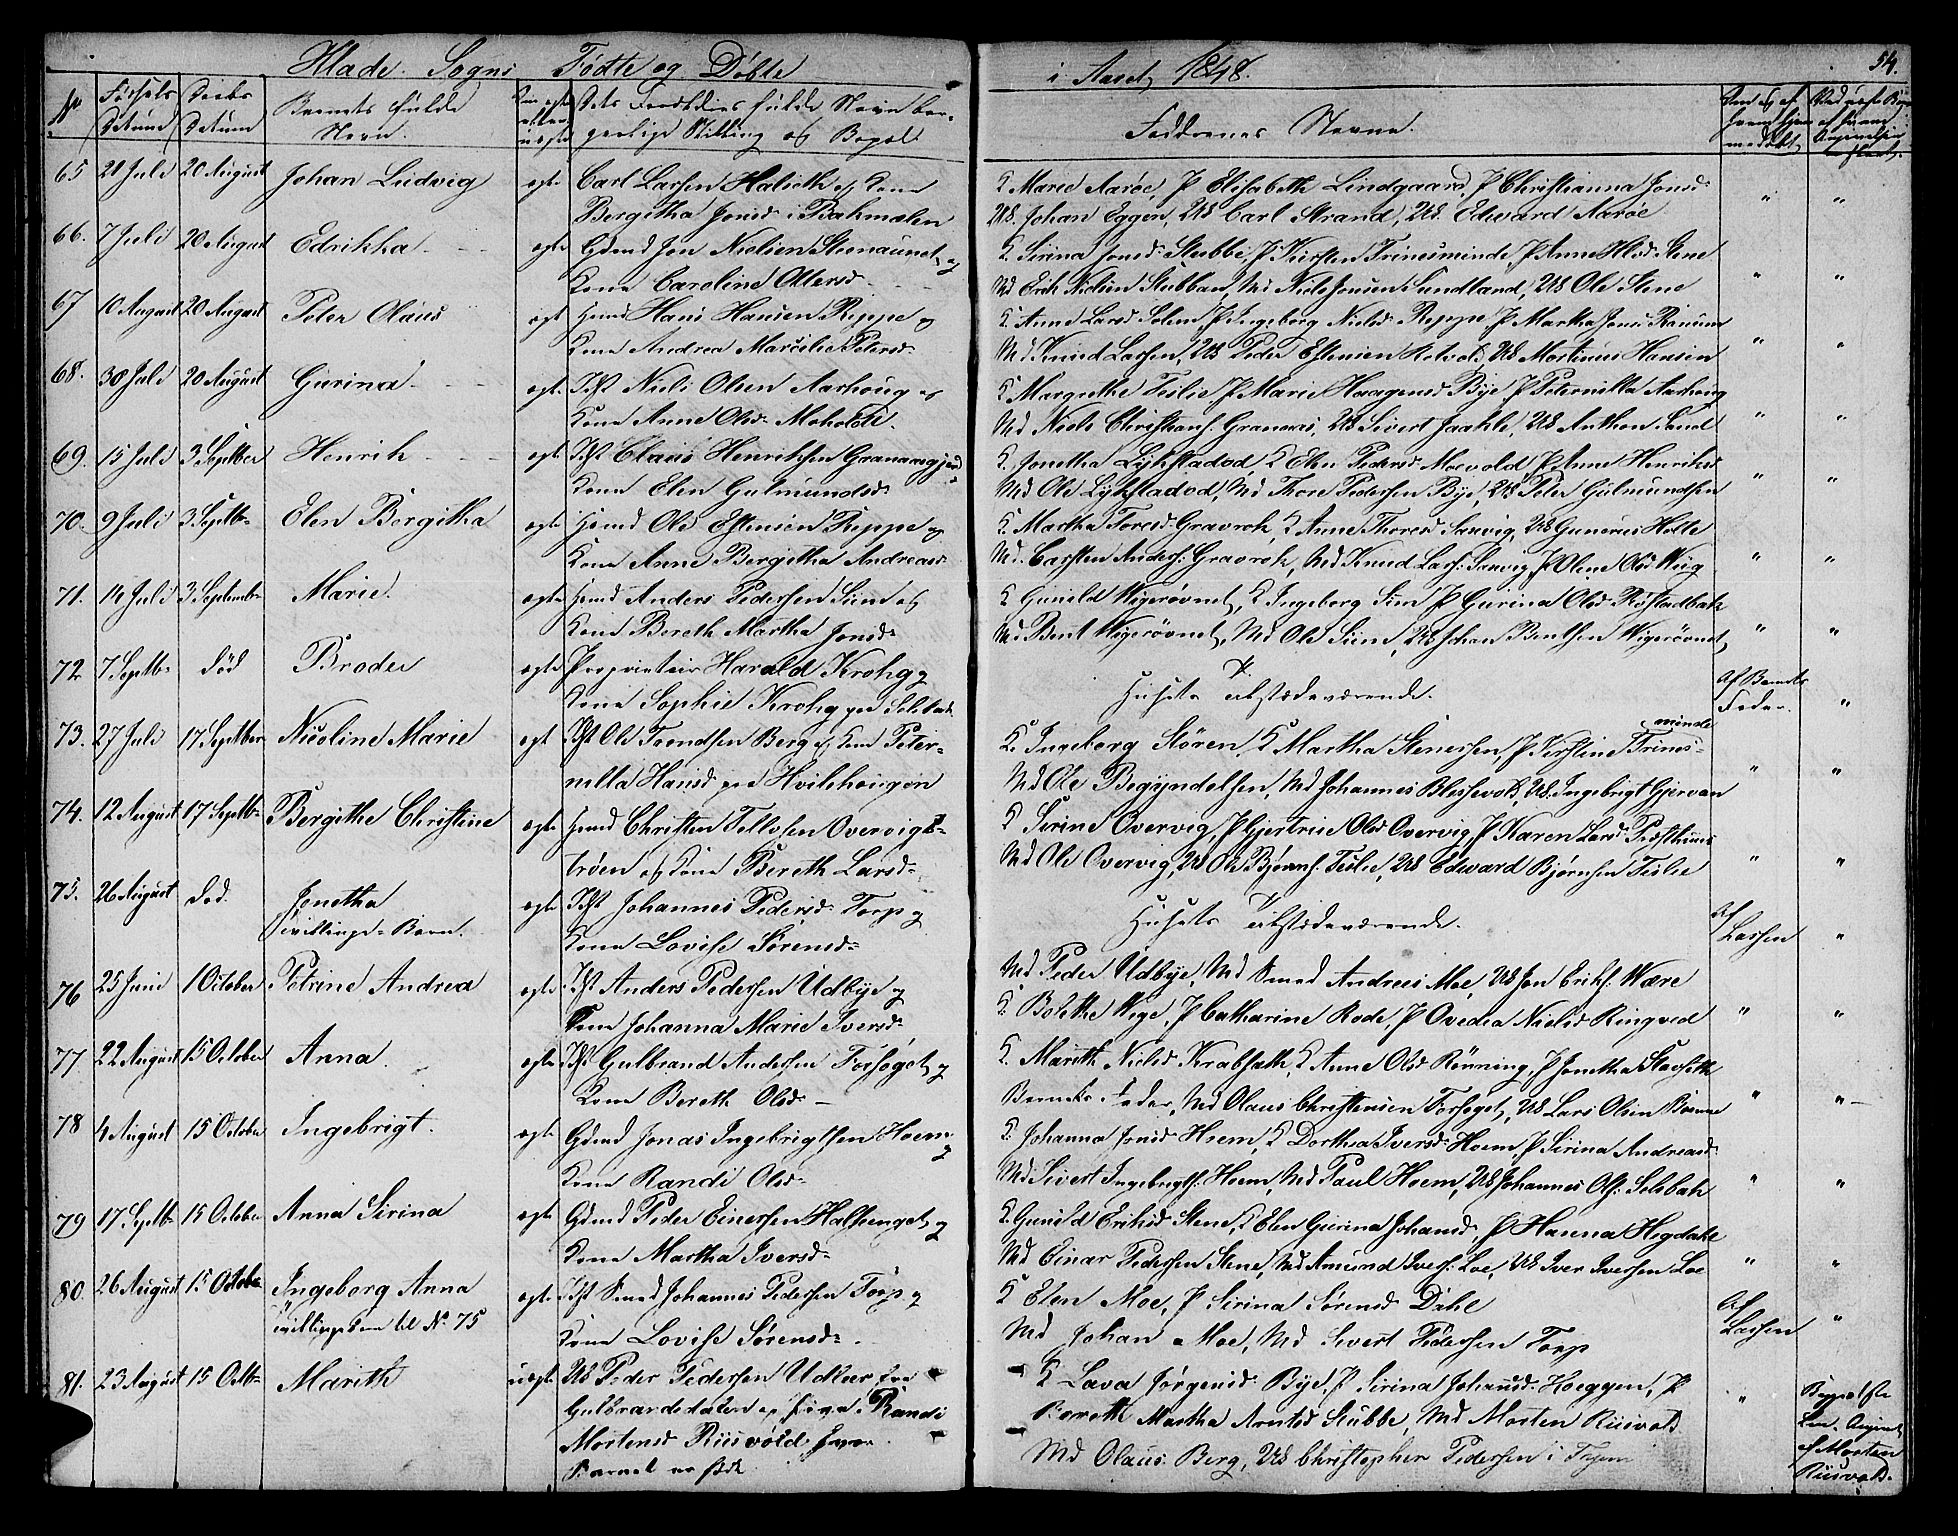 Hlade Sogns Fødte og Døbte i Aaret 1848. 54.
No Fødsels Datum Daabs Datum Barnets fulde Navn. Om ægte eller uægte Forældres fulde Navn borgerlige Stilling og Bopæl Faddrenes Navne.
65 21 Juli 20 August Johan Ludvig ægte Carl Larsen Halseth og Kone
Bergitha Jonsd i Bakmælen
K Marie Aarøe, P Elisabeth Lindgaard, P Christianna Jonsd
UK. Johan Eggen, UK Carl Strand, UK. Edward Aarøe
66. 7 Juli 20 August Edrikka ægte Gdmd Jon Nielsen Steenaunet og
Kone Caroline Ottersd
K. Sirina Jonsd Stubbe, P Kirsten Trinesminde, P Anne Olsd Stene
Md Erik Nielsen Stubban, Md Niels Jonsen Sundland, UK Ole Stene
67 10 August 20 August Peter Olaus ægt Hmd Hans Hansen Reppe og
Kone Andrea Marselie Petersd
K. Anne Larsd Solem, P Ingeborg Nielsd Reppe P Martha Jonsd Ranum
Md Knud Larsen, UK Peder Estensen Retvold, UK Martinus Hansen
68. 30 Juli 20 August Gurina ægte Ihst Niels Olsen Aarhoug og
Kone Anne Olsd Moholdt.
K Margrethe Teslie, P Marie Haagensd Bye P Peternilla Aarhoug
Md Niels Christians. Granaas, UK Sivert Jaahle, UK Anthon Sand
69. 15 Juli 3 Septber Henrik ægte Ihst Claus Henriksen Granaasgjerd
Kone Elen Gulmundsd
K. Jonetha Lykstadød K Elen Pedersd Moevold, P Anne Henriksd
Md Ole Lykstadød, Md Thore Pedersen Bye, UK Peter Gulmundsen
70. 9 Juli 3 Septbr Elen Bergitha ægte Hsmd Ole Estensen Reppe og
Kone Anne Bergitha Andreasd
K. Martha Toresd Gravrok, K Anne Thoresd Saxvig, UK Gunerius Holte
Md. Carsten Anders. Gravrok, Md Knud Lars. Saxvig, P Oline Olsd Wiig
71. 14 Juli 3 Septembr Marie ægte Hsmd Anders Pedersen Siim og
Kone Bereth Martha Jonsd
K Gunild Wigerøvnet, K Ingeborg Siim P Gurina Olsd Røstadbak
Md. Bent Wigerøvnet, Md Ole Siim, UK Johan Bentsen Wigerøvnet
72 7 Septbr død Broder ægte Proprietair Harald Krohg og
Kone Sophie Krohg paa Selsbak
Husets tilstædeværende. Af Barnets
Fader.
73. 27 Juli 17 Septber Nicoline Marie ægt Ihst Ole Trondsen Berg og Kone Peter-
nilla Hansd paa Hvilhougen
K. Ingeborg Støren, K Martha Stenersen, P Kirstine Trines-
minde
Md Ole Begyndelsen, Md Johannes Blessevold, UK. Ingebrigt Gjervan
74. 12 August 17 Septbr Bergithe Christine ægte Hsmd Christen Tellefsen Overvigs-
trøen og Kone Bereth Larsd
K Sirine Overvig, P Gjertrue Olsd Overvig, P Karen Larsd Presthuus
Md Ole Overvig, UK Ole Bjørns. Teslie, UK Edward Bjørnsen Teslie
75. 26 August død. Jonetha ægte Ihst Johannes Pedersd Torp og
Tvillinge-Barn. Kone Lovise Sørensd
Husets tilstædeværende. Af
Larsen
76 25 Juni 1 October Petrine Andrea ægte Ihst Anders Pedersen Udbye og
Kone Johanna Marie Iversd
Md Peder Udbye, Md Smed Andreas Moe, UK Jon Eriks. Være
K. Bolethe Wige, P Catharine Rode, P Ovedia Nielsd Ringved
77 22 August 15 October Anna. ægte Ihst Gulbrand Andersen Forsøget og
Kone Bereth Olsd
K. Marith Nielsd Krabsath, K Anne Olsd Rönning, P Jonetha Stavseth
Barnets Fader, Md Olaus Christensen Forsøget, UK Lars Olsen
78 4 August 15 Octobr Ingebrigt. ægte Gdmd Jonas Ingebrigtsen Hoem og
Kone Randi Olsd
K. Johanna Jonsd Hoem, K Dorthea Iversd Hoem, P Sirina Andreasd
Md Sivert Ingebrigts. Hoem, Md Paul Hoem, UK Johannes Ols. Selsbak
79 17 Septbr 15 October Anna Sirina ægte Gdmd Peder Einersen Halsenget og
Kone Martha Iversd
K. Gunild Eriksd Stene, K Elen Gurina Johansd, P Hanna Hegdahl
Md Einar Pedersen Stene, Md Amund Ivers. Loe, UK Iver Iversen Loe
80. 26 August 15 Octobr Ingeborg Anna ægte Ihst Smed Johannes Pedersen Torp og
Tvillingebarn til No 75 Kone Lovise Sørensd
K Elen Moe, P Sirina Sørensd Dahl
Md Johan Moe, Md Sivert Pedersen Torp
Af
Larsen
81. 23 August 15 Octbr Marith uægte UK Peder Pedersen Udkær fra
Gulbrandsdalen og Pige Randi
Mortensd Riisvold hvor
Barnet er født
K Lava Jørgensd Bye, P Sirina Johansd Hoeggen, P
Bereth Martha Arntsd Stubbe, Md Morten Riisvold
Md Olaus Berg, UK Christopher Pedersen i
af Morten
Riisvold.